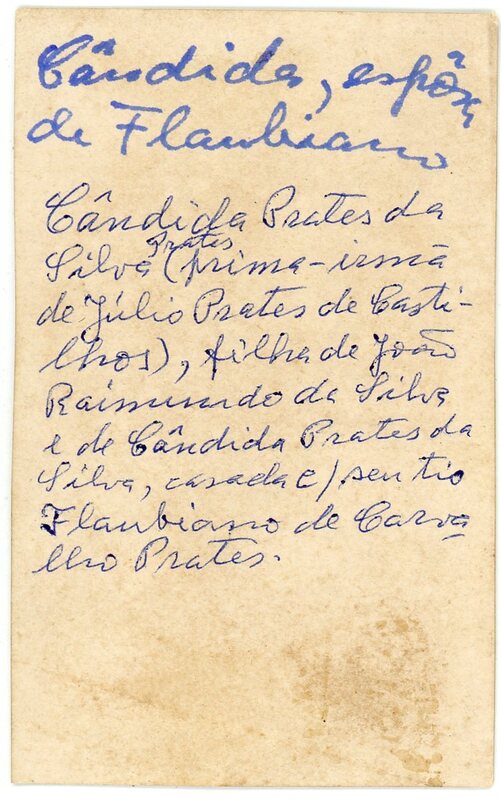 Cândida, espôsa
de Flaubiano
Cândida Prates da
Silva Prates (prima-irmã
de Júlio Prates de Casti-
lhos), filha de João
Raimundo da Silva
e de Cândida Prates da
Silva, casada c/ seu tio
Flaubiano de Carva
lho Prates.